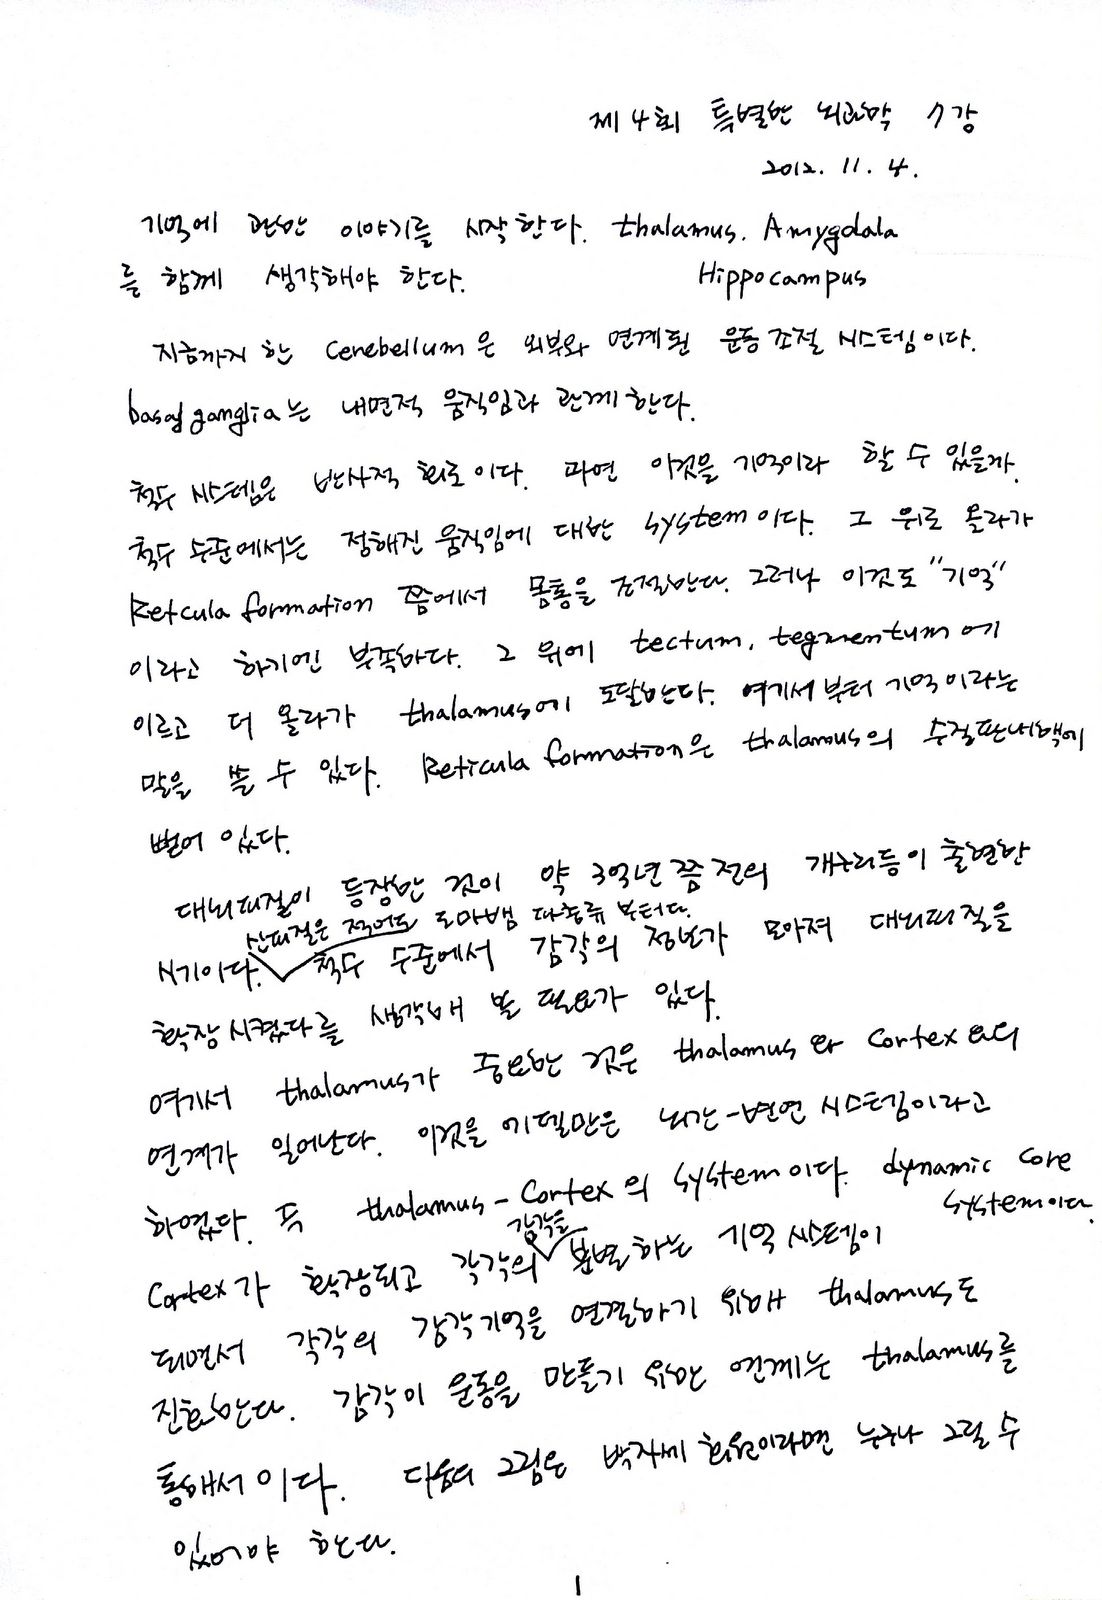 제 4회 특별반 뇌과학 7강
2012. 11. 4.
기억에 관한 이야기를 시작한다. thalamus. Amygdala
를 함께 생각해야 한다. Hippocampus
지금까지 한 Cerebellum은 외부와 연계된 운동조절 시스템이다.
basal ganglia는 내면적 움직임과 관계한다.
척수 시스템은 반사적 회로이다. 과연 이것을 기억이라 할 수 있을까.
척수 수준에서는 정해진 움직임에 대한 system이다. 그 위로 올라가
Retcula formation 쯤에서 몸통을 조절한다. 그러나 이것도 "기억"
이라고 하기엔 부족하다. 그 위에 tectum, tegmentum에
이르고 더 올라가 thalamus에 도달한다. 여기서부터 기억이라는
말을 쓸 수 있다. Reticula formation은 thalamus의 수질판내핵에
뻗어 있다.
대뇌피질이 등장한 것이 약 3억년쯤 전의 개구리등이 출현한
신피질은 적어도 도마뱀 파충류 부터다.
시기이다. 척수 수준에서 감각의 정보가 모아져 대뇌피질을
확장시켰다를 생각해 볼 필요가 있다.
여기서 thalamus가 중요한 것은 thalamus와 cortex와의
연계가 일어난다. 이것을 에델만은 뇌간-변연 시스템이라고
하였다. 즉 thalamus-Cortex의 system이다. dynamic core
system이다.
감각을
Cortex가 확장되고 각각의 분별하는 기억 시스템이
되면서 각각의 감각기억을 연결하기 위해 thalamus도
진화한다. 감각이 운동을 만들기 위한 연계는 thalamus를
통해서이다. 다음의 그림은 박자세 회원이라면 누구나 그릴 수
있어야 한다.
1